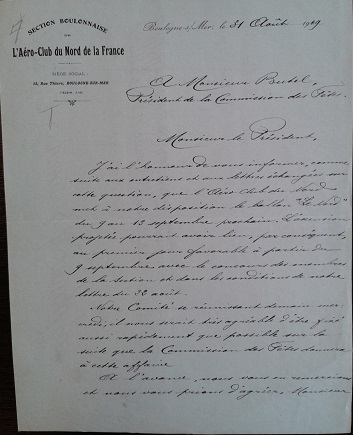 SECTION BOULONNAISE
DE
L'Aéro-Club du Nord de la France
SIÈGE SOCIAL:
14, Rue Thiers, BOULOGNE-SUR-MER
Boulogne s/Mer, le 31 Août 1909
A Monsieur
Président de la Commission des Fêtes.
Monsieur le Président,
J'ai l'honneur de vous informer, comme
suite aux entretiens et aux lettres échangées sur
cette question, que l'Aéro Club du Nord
met à notre disposition le ballon "Le Nord"
du 9 au 13 septembre prochain. L'ascension
projetée pourrait avoir lieu, par conséquent,
au premier jour favorable à partir du
9 septembre, avec le concours des membres
de la Section et dans les conditions de notre
lettre du 30 août.
Notre Comité se réunissant demain mer-
credi, il nous serait très agréable d'être fixé
aussi rapidement que possible sur la
suite que la Commission des Fêtes donnera
à cette affaire.
A l'avance, nous vous en remercions
et nous vous prions d'agréer, Monsieur